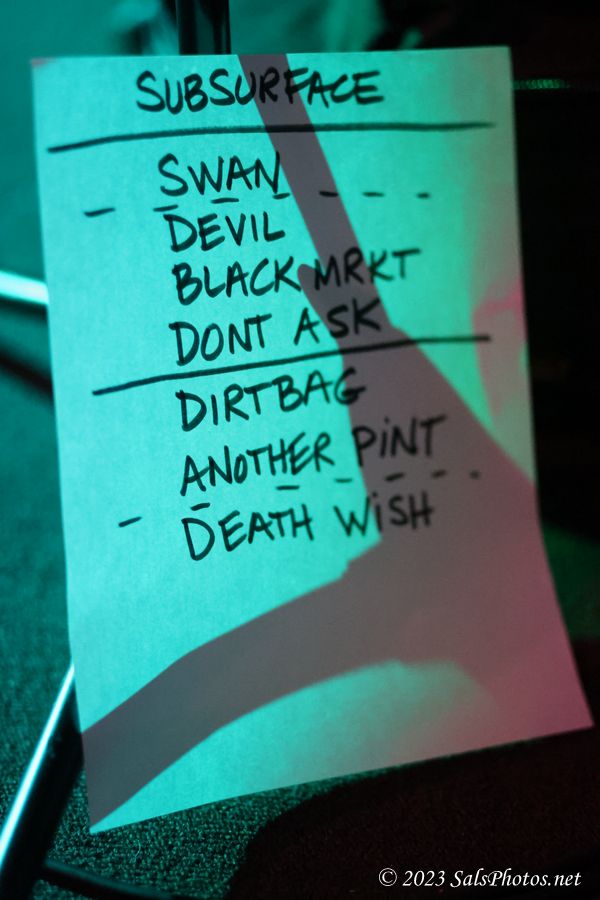 SUBSURFACE
SWAN
DEVIL
BLACK MRKT
DONT ASK
DIRTBAG
ANOTHER PiNT
DEATH WiSH
© 2023 SalsPhotos.net